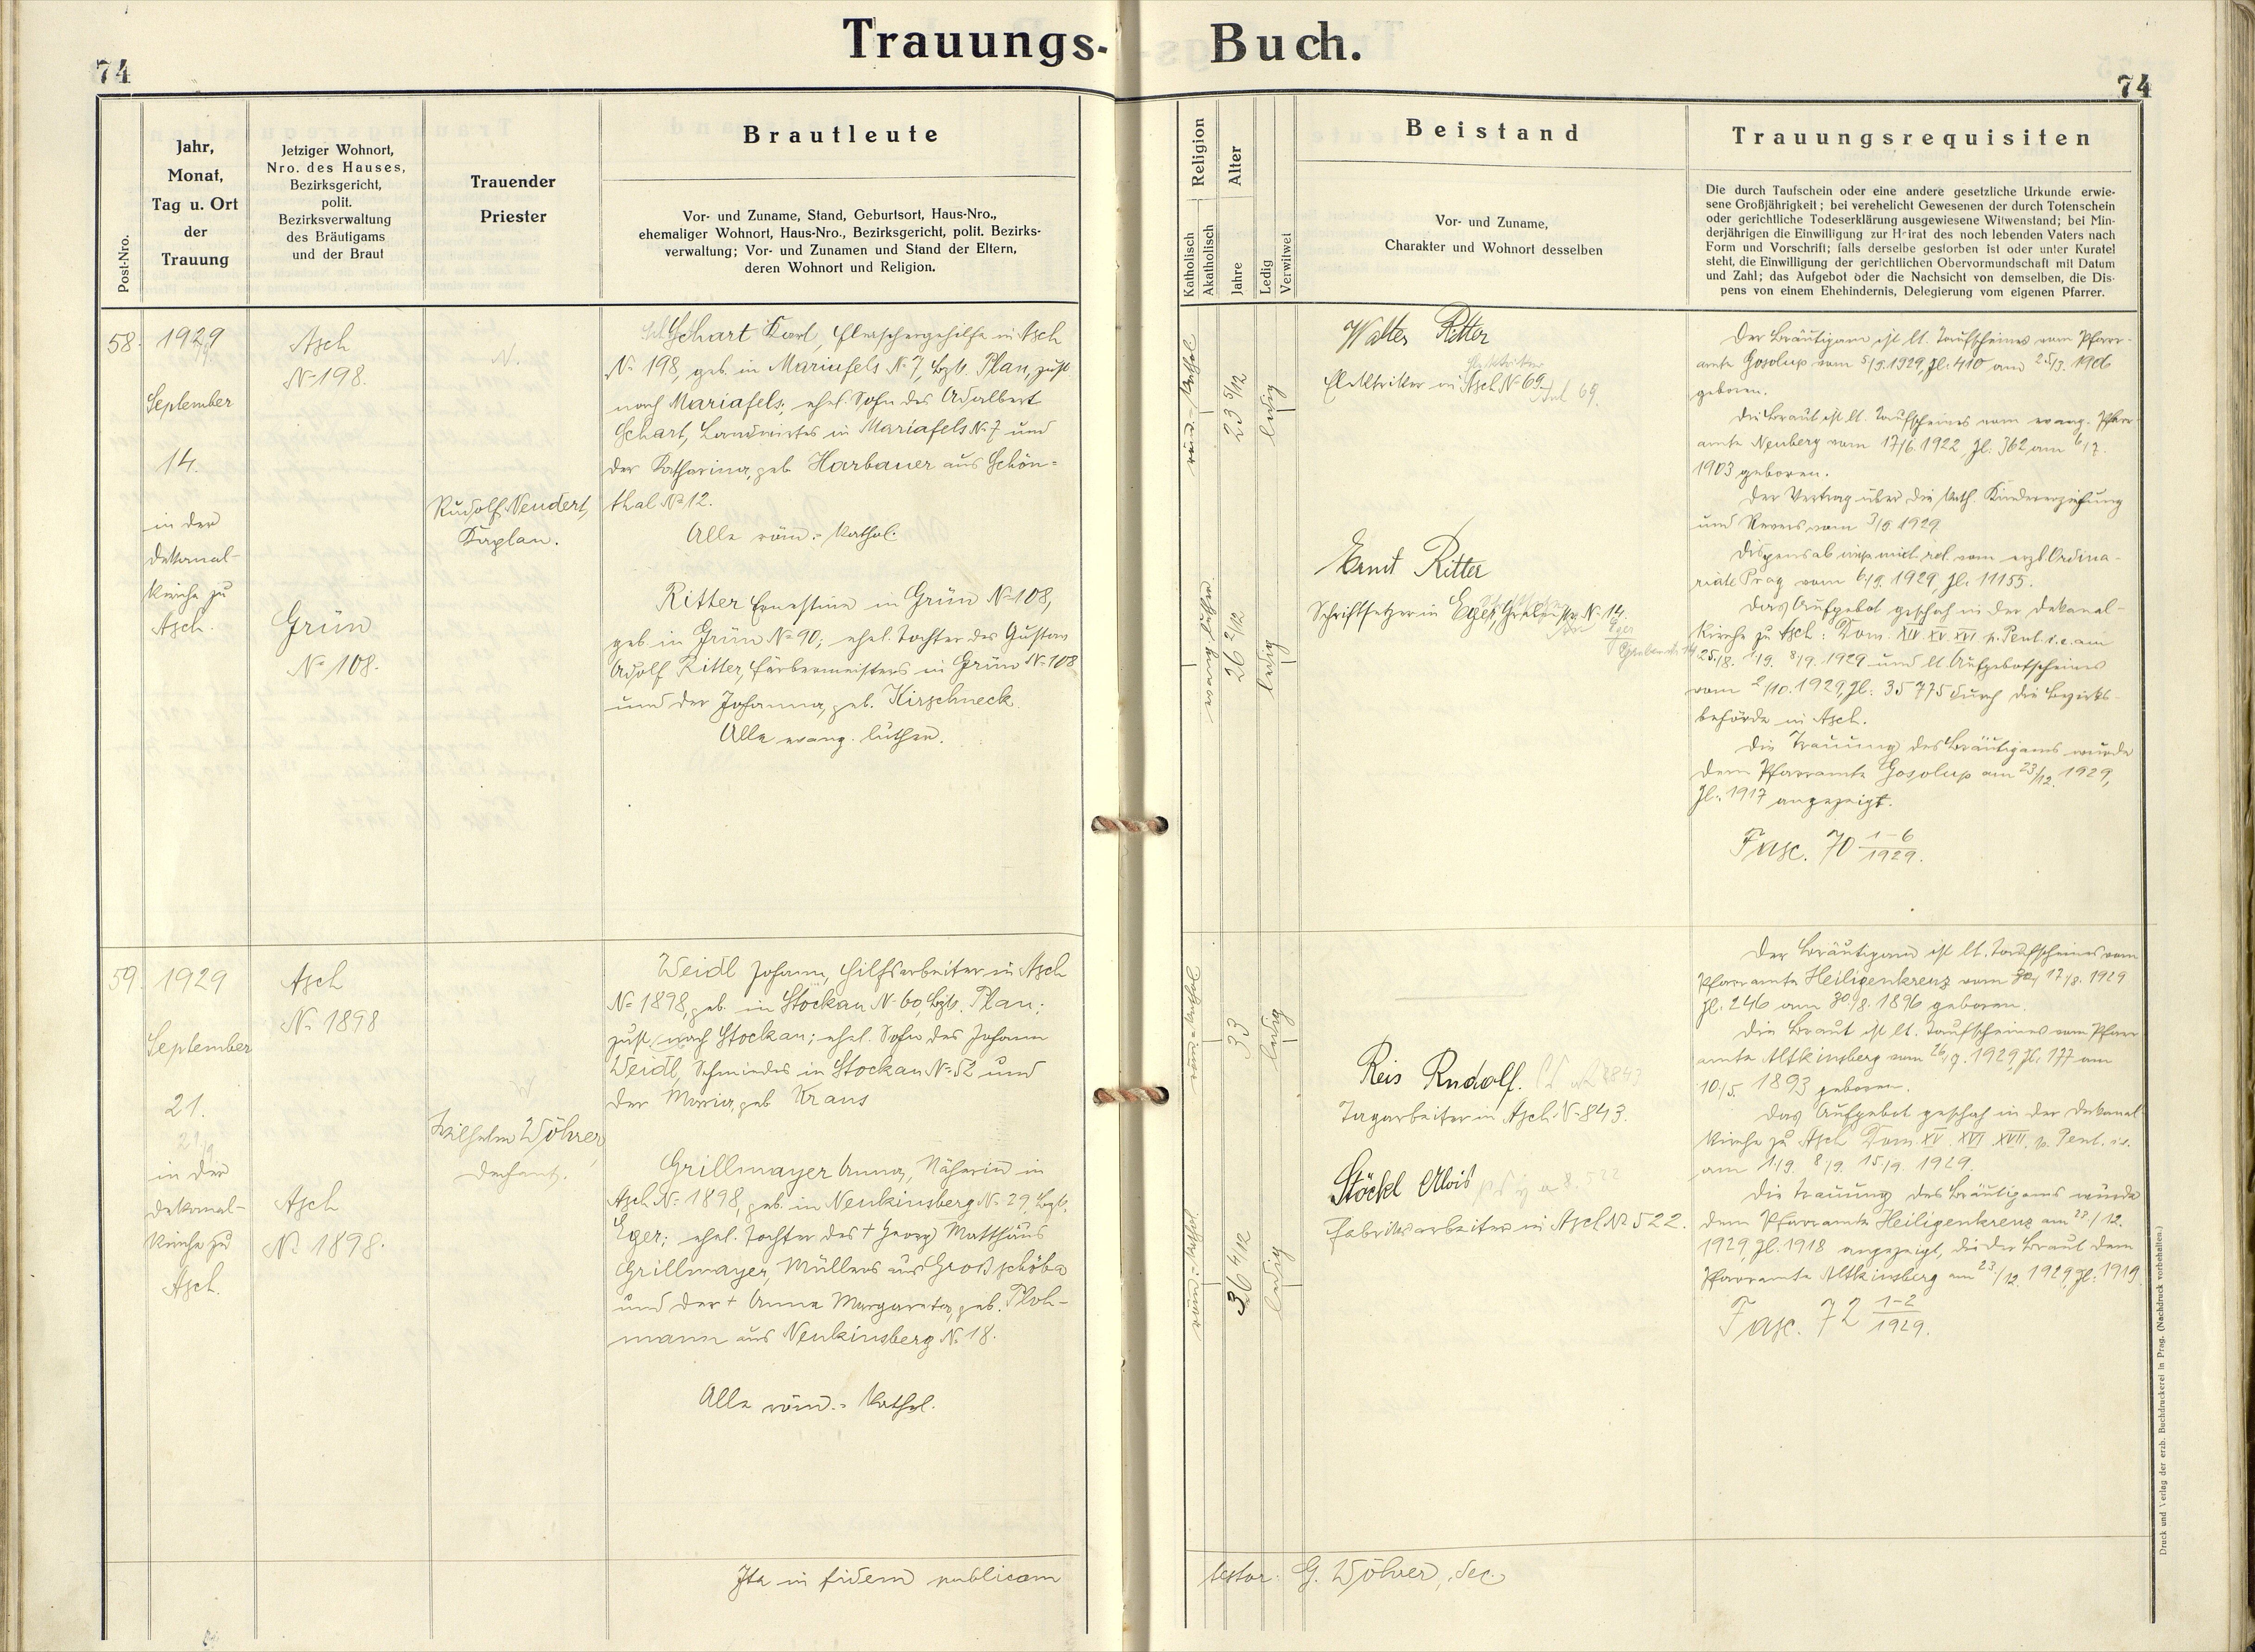 Trauungs-Buch.
74
74
Post-Nro.
Jahr,
Monat,
Tag u. Ort
der
Trauung
Jetziger Wohnort,
Nro. des Hauses,
Bezirksgericht,
polit.
Bezirksverwaltung
des Bräutigams
und der Braut
Trauender
Priester
Brautleute
Vor- und Zuname, Stand, Geburtsort, Haus-Nro.,
ehemaliger Wohnort, Haus-Nro., Bezirksgericht, polit. Bezirks-
verwaltung; Vor- und Zunamen und Stand der Eltern,
deren Wohnort und Religion.
Religion
Katholisch
Akatholisch
Alter
Jahre
Ledig
Verwitwet
Beistand
Vor- und Zuname,
Charakter und Wohnort desselben
Trauungsrequisiten
Die durch Taufschein oder eine andere gesetzliche Urkunde erwie-
sene Großjährigkeit; bei verehelicht Gewesenen der durch Totenschein
oder gerichtliche Todeserklärung ausgewiesene Witwenstand; bei Min-
derjährigen die Einwilligung zur Heirat des noch lebenden Vaters nach
Form und Vorschrift; falls derselbe gestorben ist oder unter Kuratel
steht, die Einwilligung der gerichtlichen Obervormundschaft mit Datum
und Zahl; das Aufgebot oder die Nachsicht von demselben, die Dis-
pens von einem Ehehindernis, Delegierung vom eigenen Pfarrer.
58.
1929
September
14.
in der
Dekanal-
kirche zu
Asch.
Asch
No 198.
Grün
No 108.
Rudolf Neudert,
Kaplan.
Gehart Karl, Fleischergehilfe in Asch
No 198, geb. in Mariafels No 7, Bzk. Plan, zust.
nach Mariafels; ehel. Sohn des Adalbert
Gehart, Landwirtes in Mariafels No 7 und
der Katharina, geb. Harbauer aus Schön-
thal No 12.
Alle röm.-kathol.
Ritter Ernestine in Grün No 108,
geb. in Grün No 90; ehel. Tochter des Gustav
Adolf Ritter, Färbermeisters in Grün No 108
und der Johanna, geb. Kirschneck.
Alle evang. luther.
röm.-kathol.
23 5/12
ledig
26 2/12
ledig
Walter Ritter
Elektriker in Asch No 69.
Ernst Ritter
Schriftsetzer in Eger, No 14.
Der Bräutigam ist lt. Taufscheines vom Pfarr-
amte Gosolup vom 5/9. 1929, Zl. 410 am 25/3. 1906
geboren.
Die Braut ist lt. Taufscheines vom evang. Pfarr-
amte Neuberg vom 17/6. 1922, Zl. 362 am 6/7.
1903 geboren.
Der Vertrag über die kath. Kindererziehung
und Revers vom 1929
Dispens ab mixt. rel. vom erzb. Ordina-
riate Prag vom 6/9. 1929, Zl. 11155.
Das Aufgebot geschah in der Dekanal-
kirche zu Asch: Dom. XIV. XV. XVI p. Pent. i. e. am
25./8. 1./9. 8./9. 1929 und lt. Aufgebotscheines
vom 2/10. 1929, Zl: 35775 durch die Bezirks-
behörde in Asch.
Die Trauung des Bräutigams wurde
dem Pfarramte Gosolup am 23/12. 1929,
Zl.: 1917 angezeigt.
Fasc. 70 1-6/1929.
59.
1929
September
21.
in der
Dekanal-
kirche zu
Asch.
Asch
No 1898
Asch
No 1898.
Wilhelm Wöhrer,
Dechant.
Weidl Johann, Hilfsarbeiter in Asch
No 1898, geb. in Stockau No 60, Bzk. Plan;
zust. nach Stockau; ehel. Sohn des Johann
Weidl, Schmiedes in Stockau No 52 und
der Maria, geb. Kraus
Grillmayer Anna, Näherin in
Asch No 1898, geb. in Neukinsberg No 29, Bzk.
Eger; ehel. Tochter des + Georg Matthäus
Grillmayer, Müllers aus Großschöba
und der + Anna Margareta, geb. Ploh-
mann aus Neukinsberg No 18.
Alle röm.-kathol.
röm.-kathol.
33
ledig
röm.-kathol.
36 4/12
ledig
Reis Rudolf.
Tagarbeiter in Asch No 843.
Stöckl Alois
Fabriksarbeiter in Asch No 522.
Der Bräutigam ist lt. Taufscheines vom
Pfarramte Heiligenkreuz vom 17/8. 1929
Zl. 246 am 30./8. 1896 geboren.
Die Braut ist lt. Taufscheines vom Pfarr-
amte Altkinsberg vom 1929, Zl. 177 am
10./5. 1893 geboren.
Das Aufgebot geschah in der Dekanal-
kirche zu Asch Dom. XV. XVI XVII. p. Pent. i. e.
am 1./9. 8./9. 15./9. 1929.
Die Trauung des Bräutigams wurde
dem Pfarramte Heiligenkreuz am 23/12.
1929, Zl. 1918 angezeigt, die der Braut dem
Pfarramte Altkinsberg am 23/12. 1929, Zl: 1919.
Fasc. 72 1-2/1929.
Ita in fidem publicam
testor: G. Wöhrer, Dec.
Druck und Verlag der erzb. Buchdruckerei in Prag. (Nachdruck vorbehalten.)